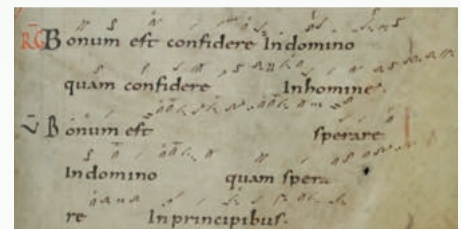 RG Bonum est confidere Indomino
quam confidere Inhomine.
V Bonum est sperare
Indomino quam spera
re Inprincipibus.